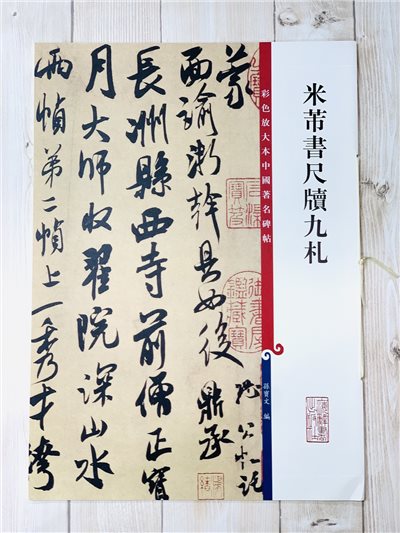 米芾書尺牘九札
彩色放大本中國著名碑帖
孫寶文 編
蒙
面諭浙幹具如後
鼎承
恐公忙託
長洲縣西寺前僧正寶
月大師收翟院深山水
兩幀第二幀上一秀才灣